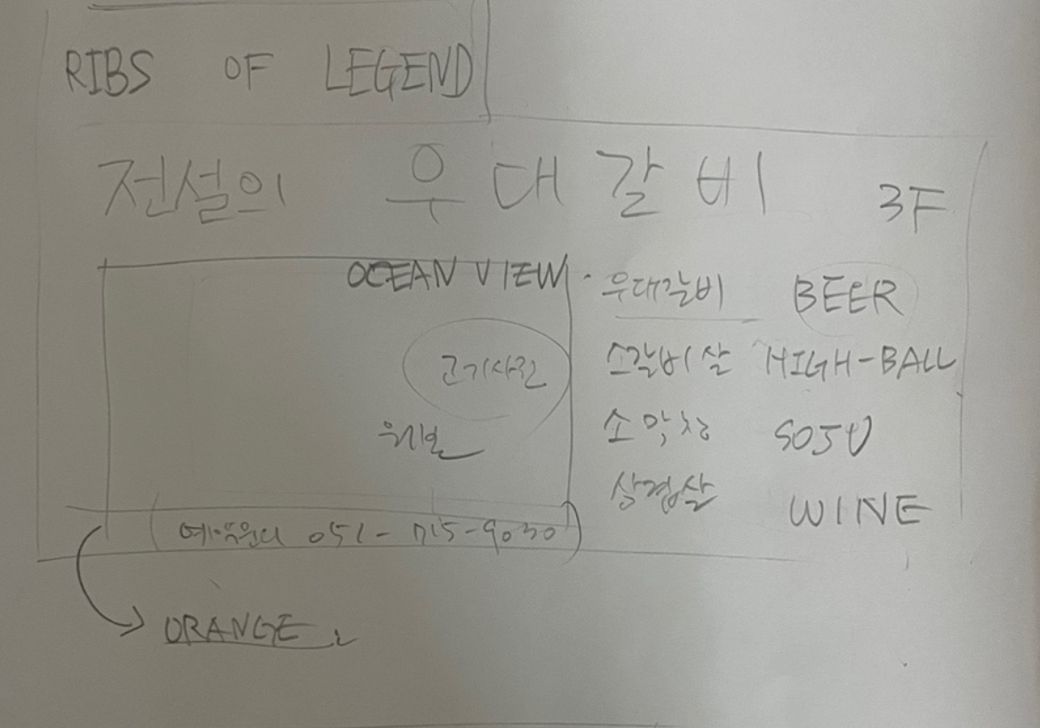 RIBS OF LEGEND
전설의 우대갈비 3F
OCEAN VIEW
고기사진
우대갈비 BEER
소갈비살 HIGH-BALL
소막창 SOJU
삼겹살 WINE
051-715-9030
ORANGE